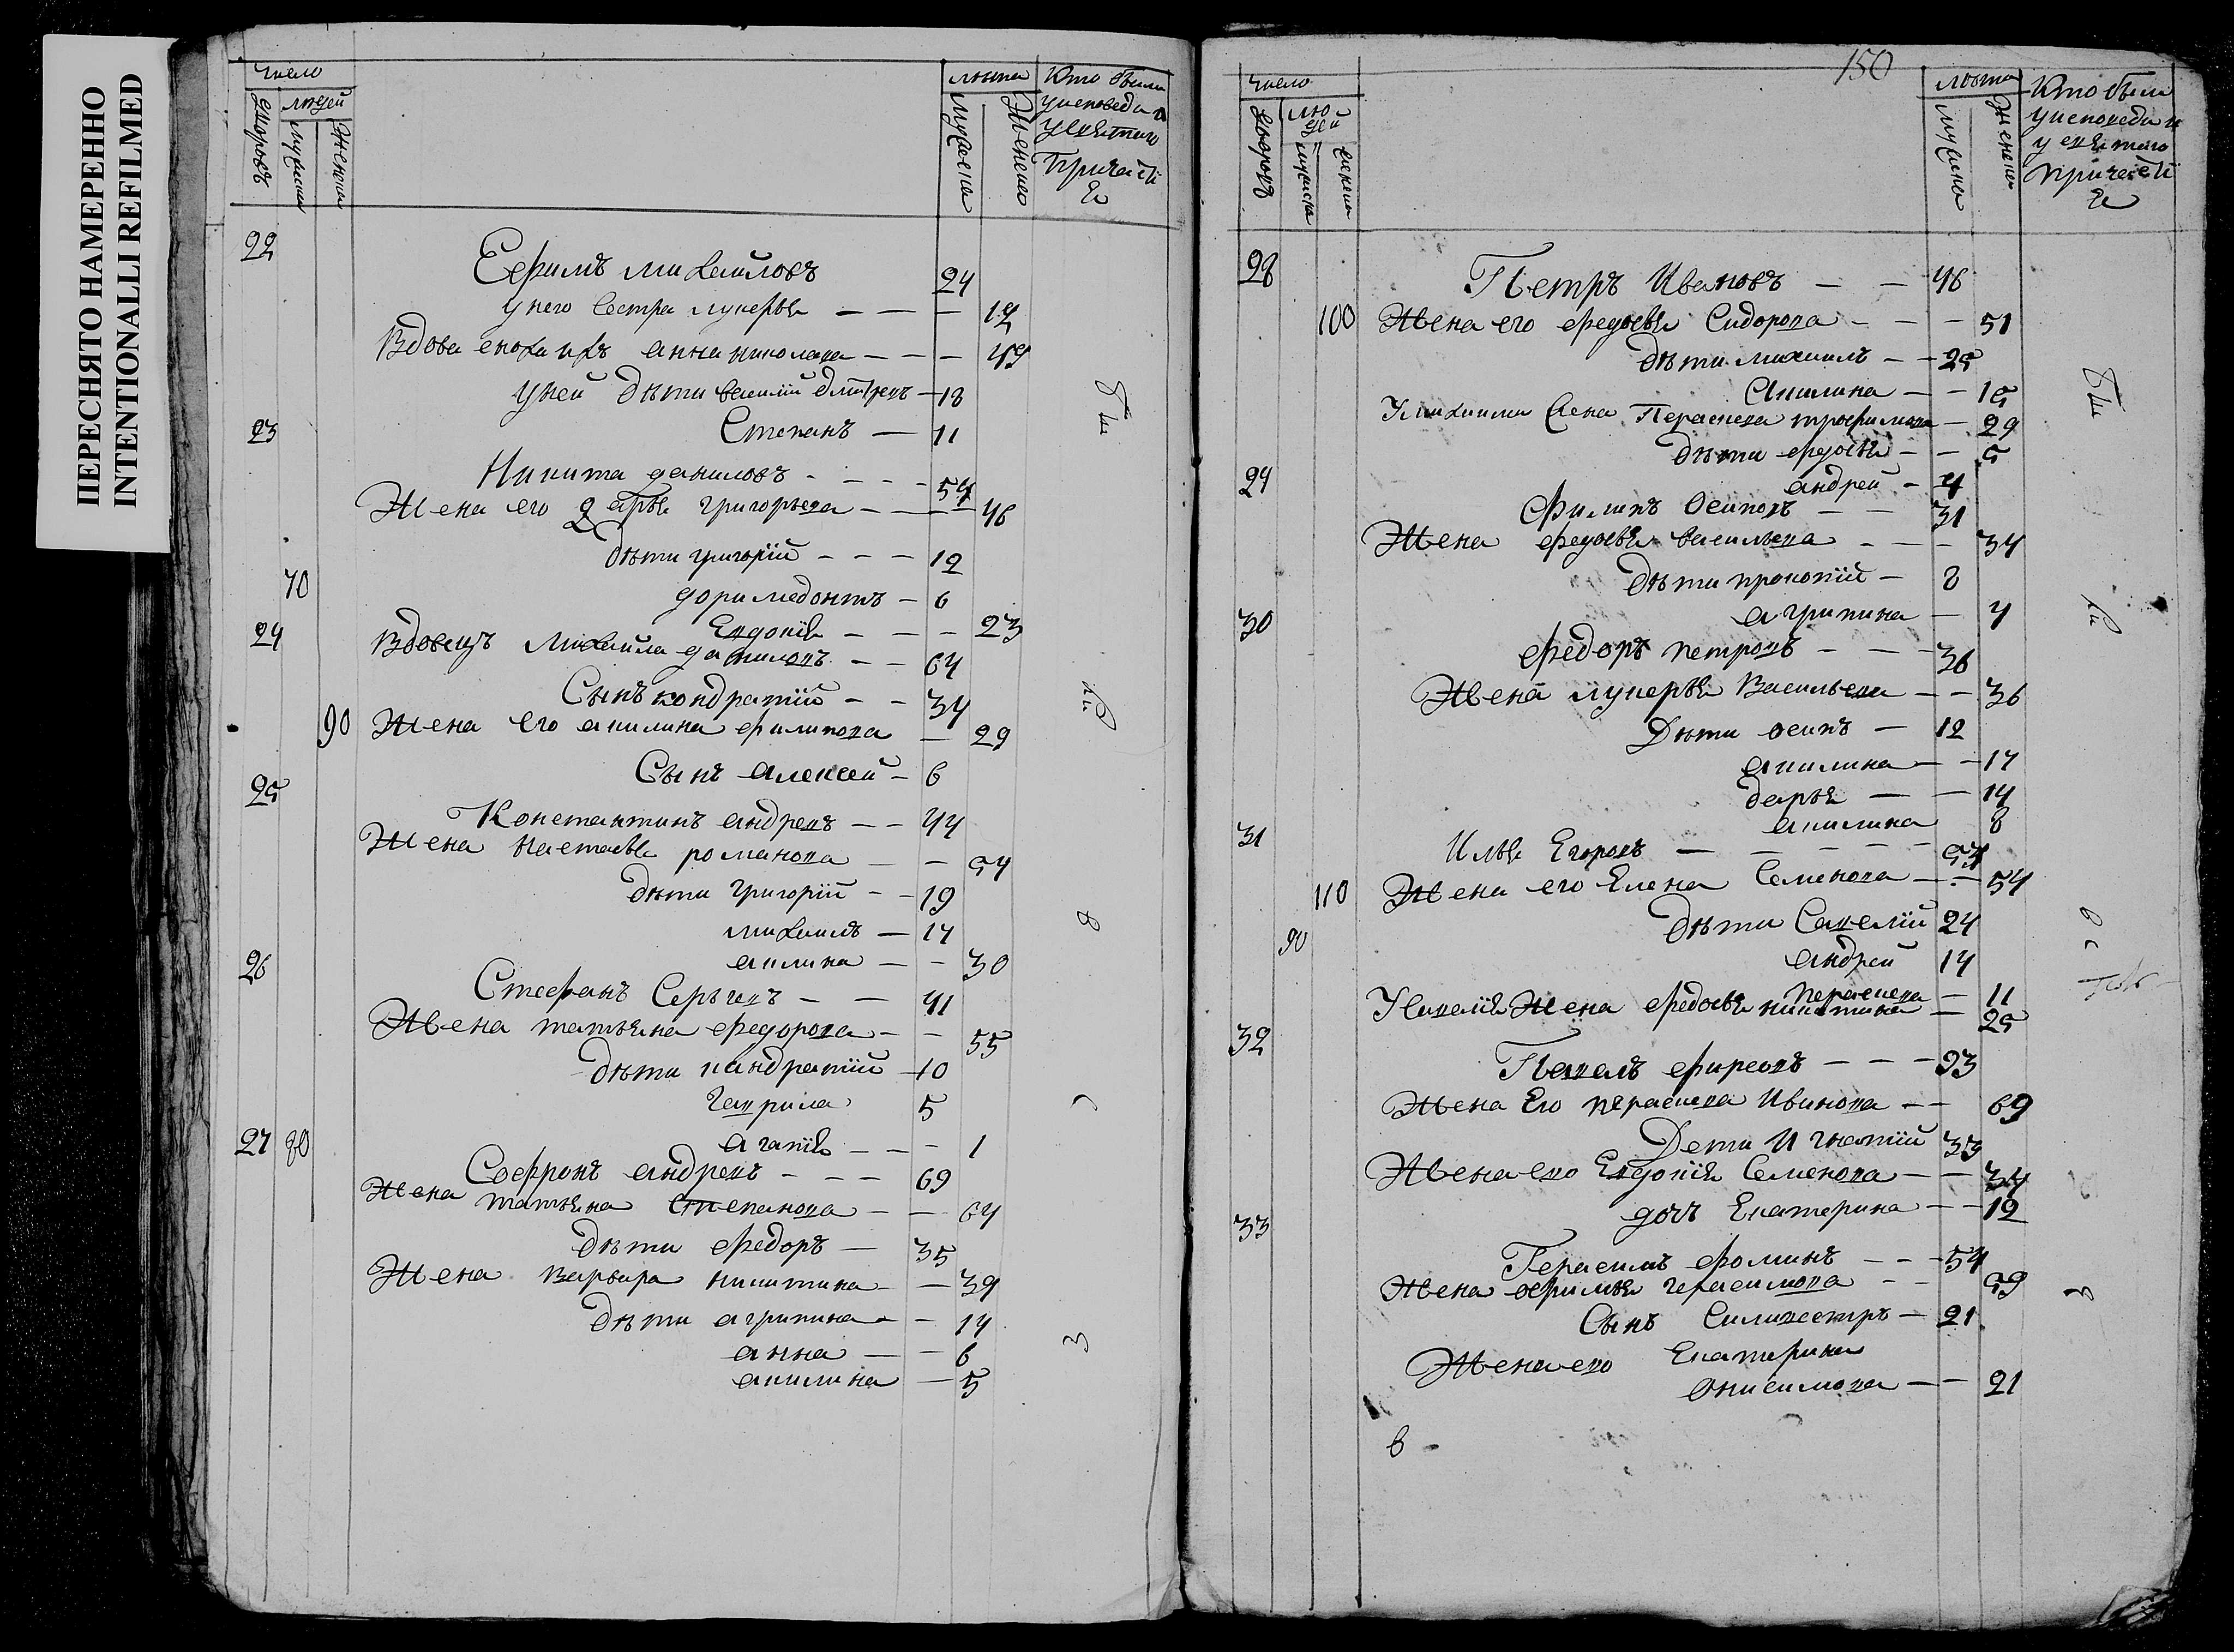 ПЕРЕСНЯТО НАМЕРЕННО
INTENTIONALLI REFILMED
число
дворовъ
людей
мужеска
женска
лѣта
мужеска
женска
Кто были
у исповеди и
у святаго
причасті
я
22
Ефимъ михайловъ 24
у него сестра лукерья — — — 12
Вдова анна николаева — — — 49
у ней дѣти василий дмитревъ — 18
Степанъ — 11
23
Никита даниловъ - - - - 54
Жена его дарья григорьева — — — 46
дѣти григорій — — — 12
70
доримедонтъ — 6
Евдокія — — — 23
24
Вдовецъ михайла даниловъ — — 64
Сынъ кондратій — — 34
90
Жена его акилина филипова — 29
Сынъ алексей — 6
25
Константинъ андревъ — — 44
Жена настасья романова — — 54
дѣти григорій — — 19
михаилъ — 14
акилина — — 30
26
Стефанъ Сергѣевъ — — 41
Жена татьяна федорова — — 55
дѣти кандратій — 10
гаврила 5
агапія — — — 1
27 80
Софронъ андревъ - — — 69
Жена татьяна степанова — — 64
дѣти федоръ — 35
Жена варвара никитина — — 39
дѣти агрипина — — 14
анна — — 6
акилина — 5
были
150
число
дворовъ
людей
мужеска
женска
лѣта
мужеска
женска
Кто были
у исповеди и
у святаго
причастії
я
28
Петръ Ивановъ — — 46
100
Жена его федосья Сидорова — — — 51
дѣти михаилъ — — 25
Акилина — — 15
У михаила жена Пераскева трофимова — 29
дѣти федосья — — 5
андрей — 4
29
Филипъ Осиповъ — — 31
Жена федосья васильева - — — 34
дѣти прокопій — 8
агрипина — 4
30
федоръ петровъ — — — 36
Жена лукерья Васильева — — 36
Дѣти осипъ — 12
акилина — — 17
дарья — — 14
акилина 8
31
Илья Егоровъ — — — — — 54
110
Жена его Елена Семенова — — 54
дѣти Савелій 24
90
андрей 14
пераскева — 11
У савелія Жена федосья никитина — 25
32
Павелъ фирсовъ — — — 93
Жена Его пераскева Иванова — — 69
Дети Игнатій 33
Жена ево Евдокія Семенова — — 34
дочь Екатерина — — 12
33
Герасимъ фоминъ — — — 54
Жена офимья герасимова — — 59
Сынъ Силивестръ — 21
Жена ево Екатерина
Онисимова — — 21
были
в -